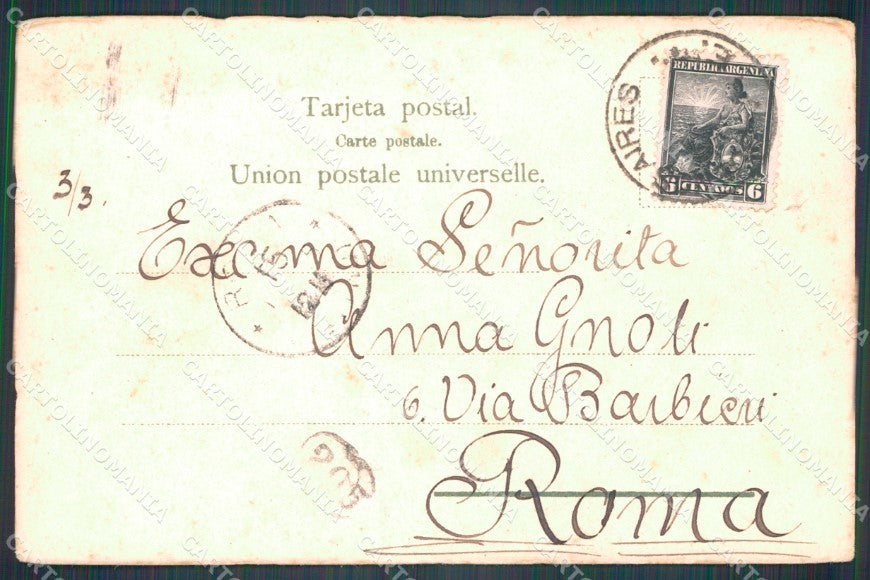 Tarjeta postal.
Carte postale.
Union postale universelle.
REPUBLICA ARGENTINA
CENTAVOS 6
AIRES
3/3.
Excma Señorita
Anna Gnoli
6. Via Barbieri
Roma
CARTOLINOMANIA